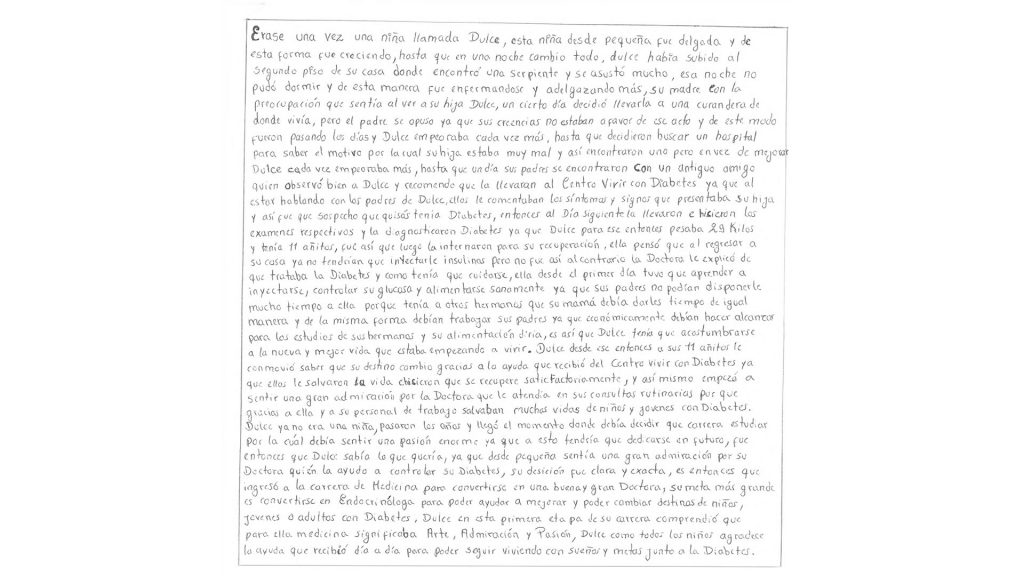 Erase una vez una niña llamada Dulce, esta niña desde pequeña fue delgada y de
esta forma fue creciendo, hasta que en una noche cambio todo, dulce había subido al
segundo piso de su casa donde encontró una serpiente y se asustó mucho, esa noche no
pudo dormir y de esta manera fue enfermandose y adelgazando más, su madre con la
preocupación que sentía al ver a su hija Dulce, un cierto día decidió llevarla a una curandera de
donde vivía, pero el padre se opuso ya que sus creencias no estaban a favor de ese acto y de este modo
fueron pasando los días y Dulce empeoraba cada vez más, hasta que decidieron buscar un hospital
para saber el motivo por la cual su hija estaba muy mal y así encontraron uno pero en vez de mejorar
Dulce cada vez empeoraba más, hasta que un día sus padres se encontraron con un antiguo amigo
quien observó bien a Dulce y recomendo que la llevaran al Centro Vivir con Diabetes ya que al
estar hablando con los padres de Dulce, ellos le comentaban los síntomas y signos que presentaba su hija
y así fue que sospecho que quisás tenia Diabetes, entonces al Día siguiente la llevaron e hicieron los
examenes respectivos y la diagnosticaron Diabetes ya que Dulce para ese entonces pesaba 29 Kilos
y tenía 11 añitos, fue así que luego la internaron para su recuperación, ella pensó que al regresar a
su casa ya no tendrían que inyectarle insulinas pero no fue así al contrario la Doctora le explicó de
que trataba la Diabetes y como tenía que cuidarse, ella desde el primer día tuvo que aprender a
inyectarse, controlar su glucosa y alimentarse sanamente ya que sus padres no podían disponerle
mucho tiempo a ella porque tenía a otros hermanos que su mamá debía darles tiempo de igual
manera y de la misma forma debían trabajar sus padres ya que económicamente debían hacer alcanzar
para los estudios de sus hermanos y su alimentación diria, es así que Dulce tenía que acostumbrarse
a la nueva y mejor vida que estaba empezando a vivir. Dulce desde ese entonces a sus 11 añitos le
conmovió saber que su destino cambio gracias a la ayuda que recibió del Centro vivir con Diabetes ya
que ellos le salvaron la vida e hicieron que se recupere satisfactoriamente, y así mismo empezó a
sentir una gran admiración por la Doctora que le atendía en sus consultas rutinarias por que
gracias a ella y a su personal de trabajo salvaban muchas vidas de niños y jovenes con Diabetes.
Dulce ya no era una niña, pasaron los años y llegó el momento donde debía decidir que carrera estudiar
por la cuál debía sentir una pasión enorme ya que a esto tendría que dedicarse en futuro, fue
entonces que Dulce sabía lo que quería, ya que desde pequeña sentía una gran admiración por su
Doctora quién la ayudo a controlar su Diabetes, su desición fue clara y exacta, es entonces que
ingresó a la carrera de Medicina para convertirse en una buena y gran Doctora, su meta más grande
es convertirse en Endocrinóloga para poder ayudar a mejorar y poder cambiar destinos de niños,
jovenes o adultos con Diabetes, Dulce en esta primera etapa de su carrera comprendió que
para ella medicina significaba Arte, Admiración y Pasión, Dulce como todos los niños agradece
la ayuda que recibió día a día para poder seguir viviendo con sueños y metas junto a la Diabetes.